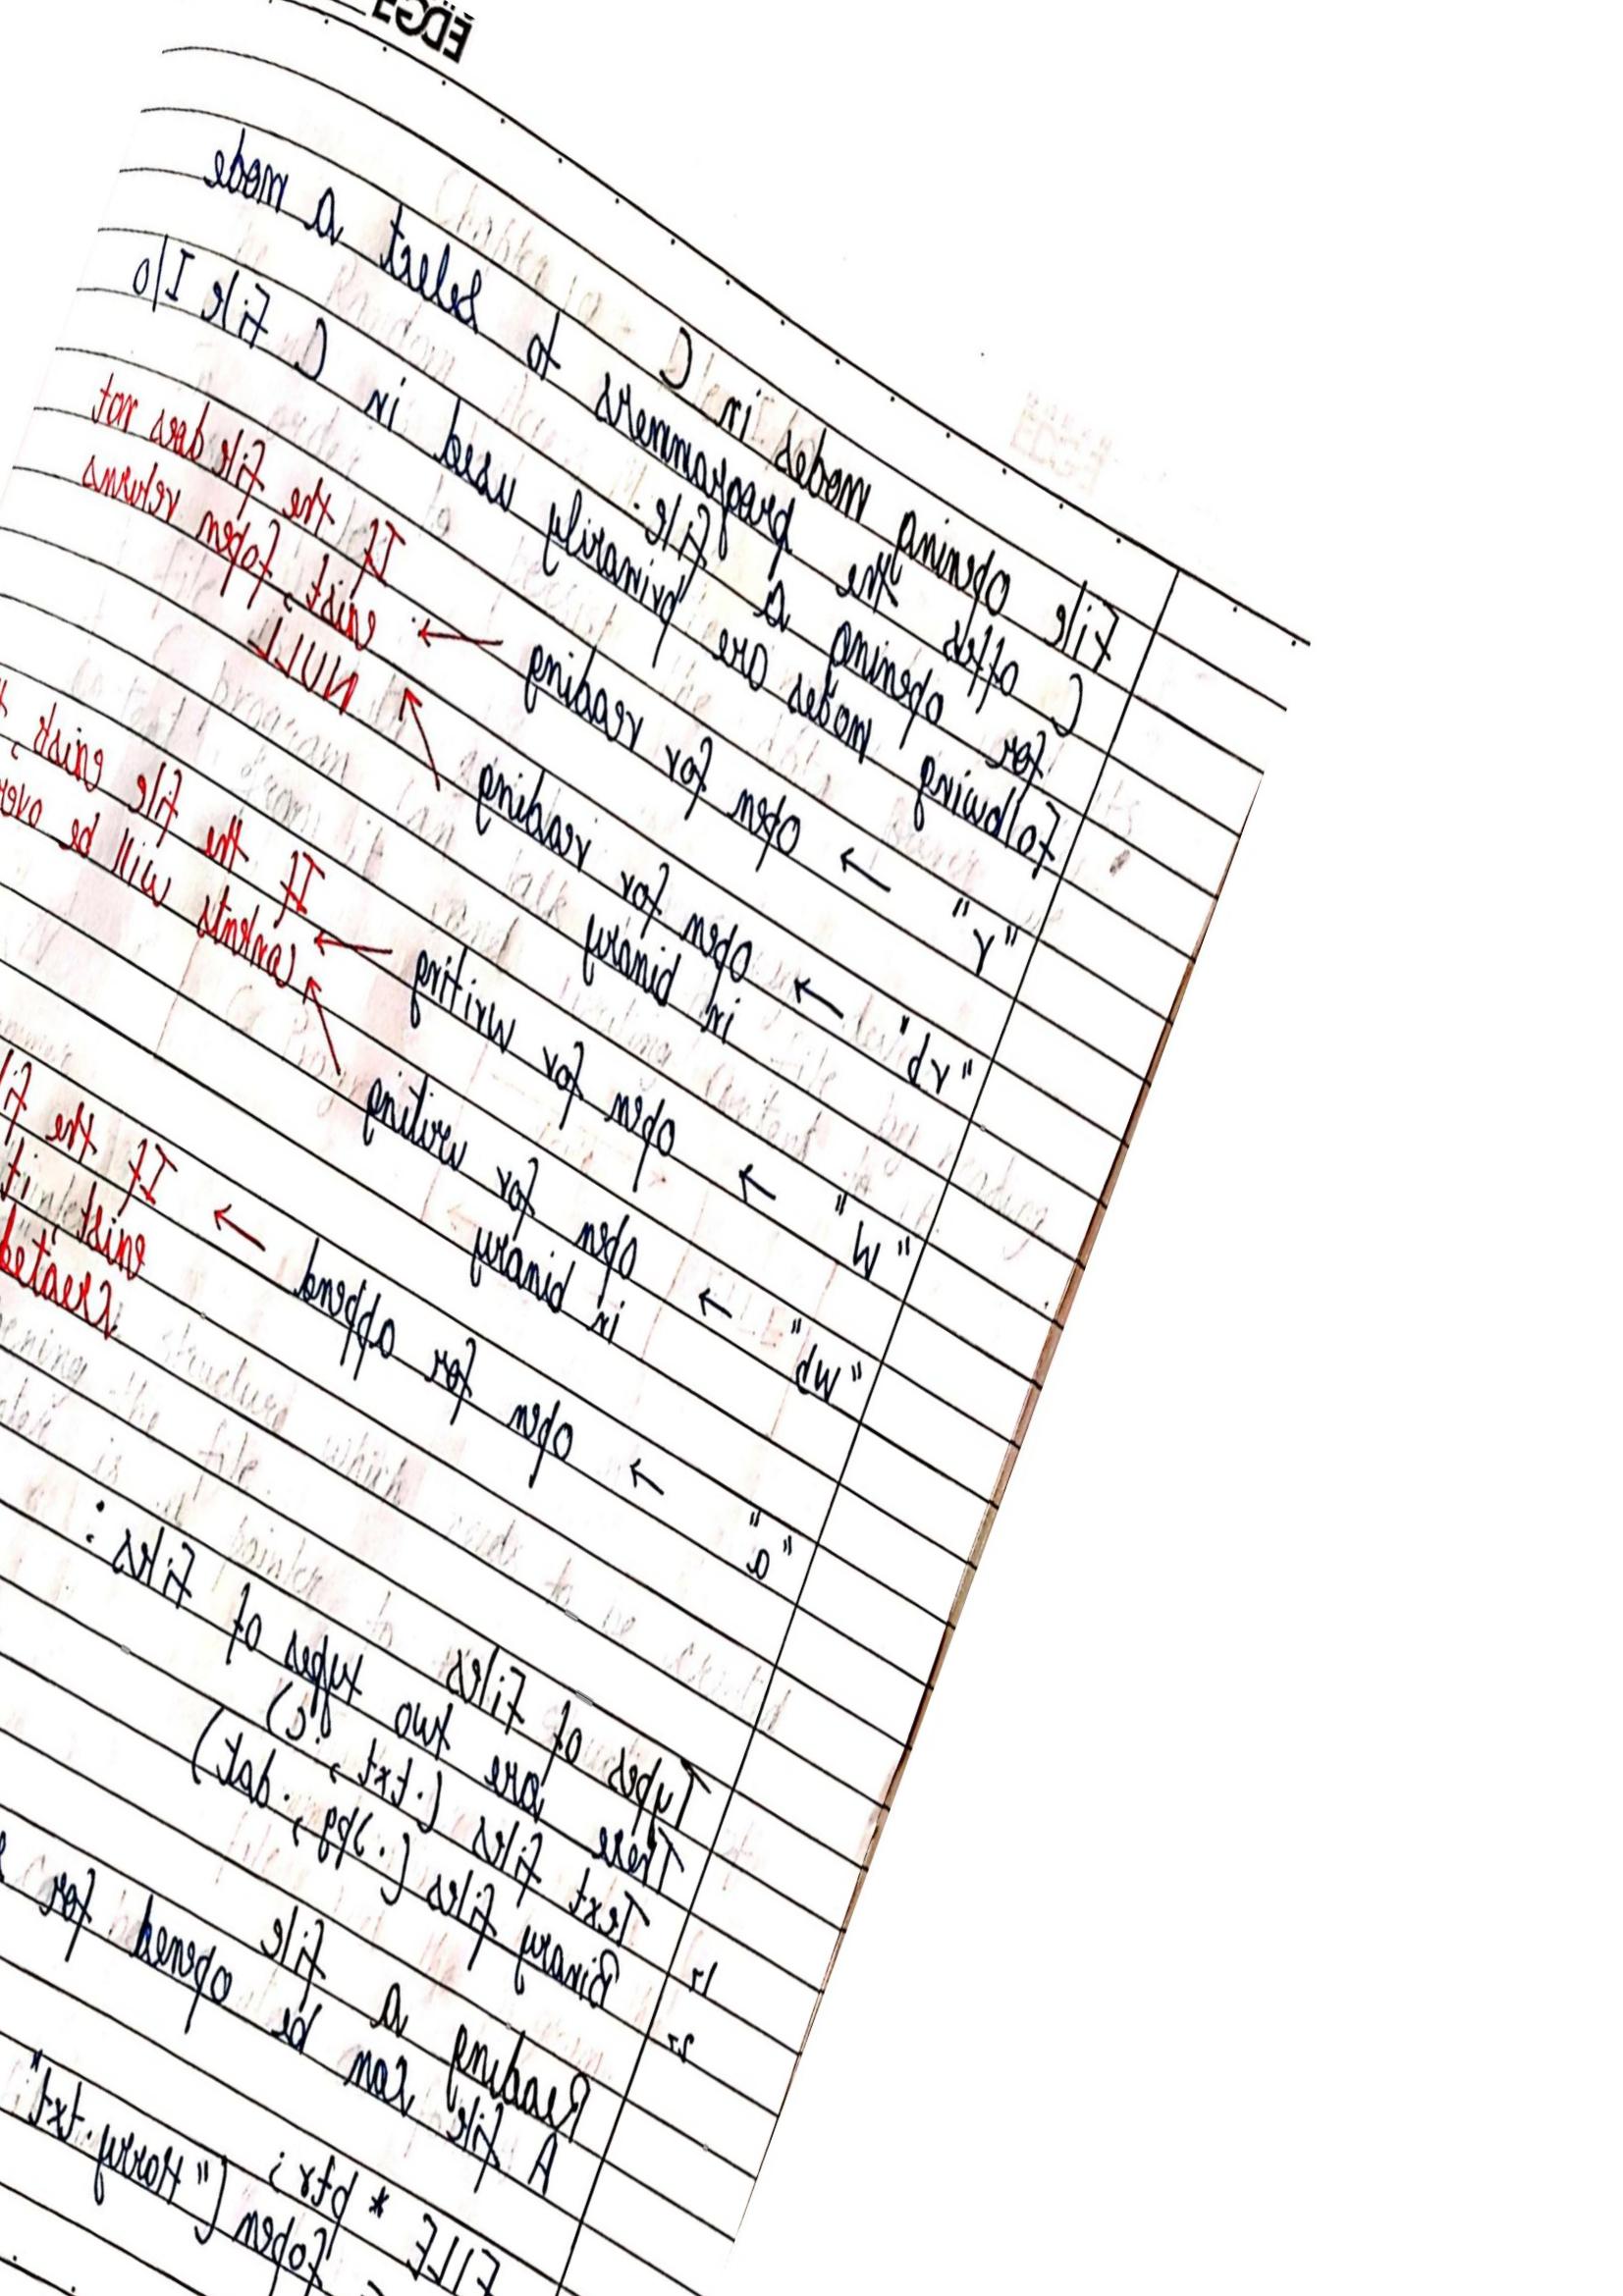 EDGE
File opening modes in C
C offers the programmers to select a mode
for opening a file.
Following modes are primarily used in C File I/O
"r" → open for reading → If the file does not
exist, fopen returns
NULL
"rb" → open for reading
in binary
"w" → open for writing → If the file exist,
contents will be over
"wb" → open for writing
in binary
"a" → open for append → If the
exist, it
created
Types of Files
There are two types of files:
1. Text files (.txt, .c)
2. Binary files (.jpg, .dat)
Reading a file
A file can be opened for
FILE * ptr;
fopen ("Harry.txt"